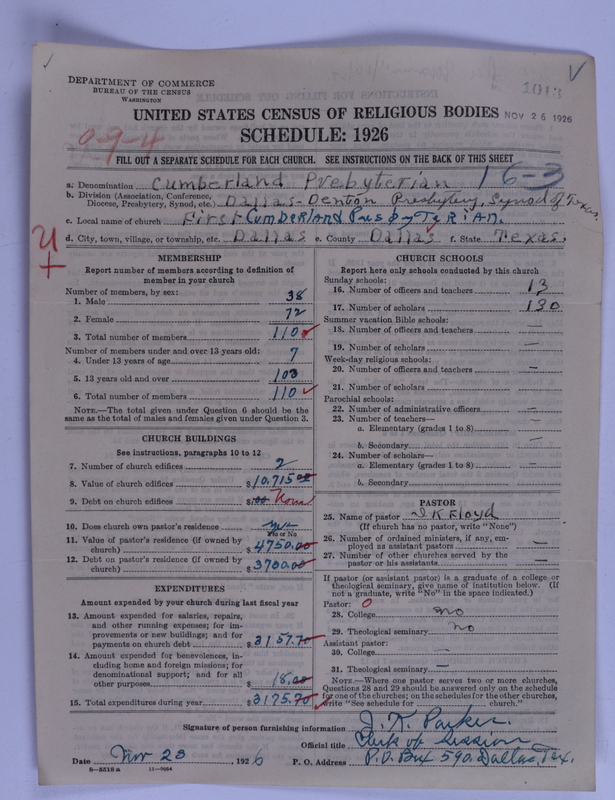 DEPARTMENT OF COMMERCE
BUREAU OF THE CENSUS
WASHINGTON
1013
UNITED STATES CENSUS OF RELIGIOUS BODIES
NOV 26 1926
SCHEDULE: 1926
0-9-4
FILL OUT A SEPARATE SCHEDULE FOR EACH CHURCH. SEE INSTRUCTIONS ON THE BACK OF THIS SHEET
a. Denomination Cumberland Presbyterian 16-3
b. Division (Association, Conference, Diocese, Presbytery, Synod, etc.) Dallas-Denton Presbytery, Synod of Texas.
c. Local name of church First Cumberland Presbyterian.
d. City, town, village, or township, etc. Dallas e. County Dallas f. State Texas.
MEMBERSHIP
Report number of members according to definition of member in your church
Number of members, by sex:
1. Male 38
2. Female 72
3. Total number of members 110
Number of members under and over 13 years old:
4. Under 13 years of age 7
5. 13 years old and over 103
6. Total number of members 110
NOTE.—The total given under Question 6 should be the same as the total of males and females given under Question 3.
CHURCH BUILDINGS
See instructions, paragraphs 10 to 12
7. Number of church edifices 2
8. Value of church edifices $10,715.00
9. Debt on church edifices $ None
10. Does church own pastor's residence yes
Yes or No
11. Value of pastor's residence (if owned by church) $4750.00
12. Debt on pastor's residence (if owned by church) $3700.00
EXPENDITURES
Amount expended by your church during last fiscal year
13. Amount expended for salaries, repairs, and other running expenses; for improvements or new buildings; and for payments on church debt $3157.70
14. Amount expended for benevolences, including home and foreign missions; for denominational support; and for all other purposes $18.00
15. Total expenditures during year $3175.70
CHURCH SCHOOLS
Report here only schools conducted by this church
Sunday schools:
16. Number of officers and teachers 13
17. Number of scholars 130
Summer vacation Bible schools:
18. Number of officers and teachers —
19. Number of scholars —
Week-day religious schools:
20. Number of officers and teachers —
21. Number of scholars —
Parochial schools:
22. Number of administrative officers —
23. Number of teachers—
a. Elementary (grades 1 to 8) —
b. Secondary —
24. Number of scholars—
a. Elementary (grades 1 to 8) —
b. Secondary —
PASTOR
25. Name of pastor I K Floyd
(If church has no pastor, write "None")
26. Number of ordained ministers, if any, employed as assistant pastors —
27. Number of other churches served by the pastor or his assistants —
If pastor (or assistant pastor) is a graduate of a college or theological seminary, give name of institution below. (If not a graduate, write "No" in the space indicated.)
Pastor: 0
28. College no
29. Theological seminary no
Assistant pastor:
30. College —
31. Theological seminary —
NOTE.—Where one pastor serves two or more churches, Questions 28 and 29 should be answered only on the schedule for one of the churches; on the schedules for the other churches, write "See schedule for church."
Signature of person furnishing information J. K. Parker.
Official title Clerk of Session
Date Nov 23, 1926 P. O. Address P.O. Box 590. Dallas, Tex.
8-5318a 11-9064